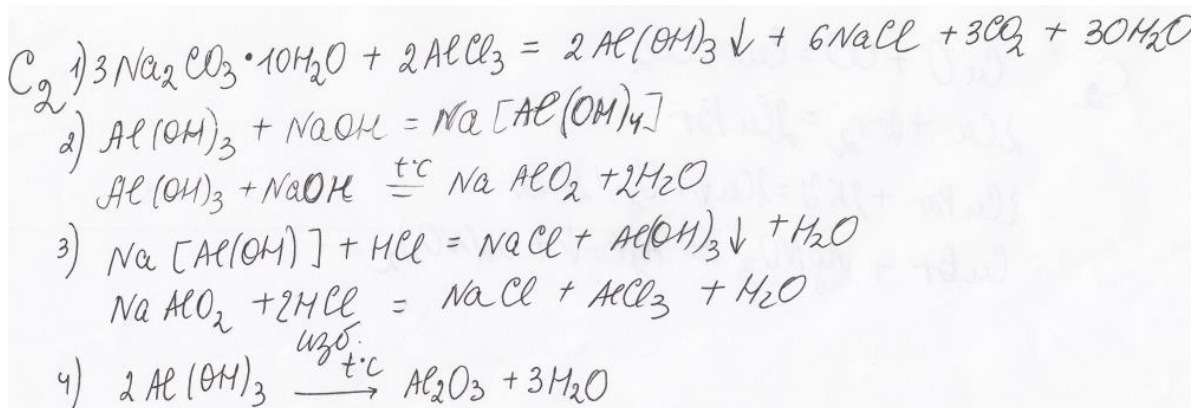 C2 1) 3Na2CO3·10H2O + 2AlCl3 = 2Al(OH)3↓ + 6NaCl + 3CO2 + 30H2O
2) Al(OH)3 + NaOH = Na[Al(OH)4]
Al(OH)3 + NaOH t°C = NaAlO2 + 2H2O
3) Na[Al(OH)] + HCl = NaCl + Al(OH)3↓ + H2O
NaAlO2 + 2HCl = NaCl + AlCl3 + H2O
изб.
4) 2Al(OH)3 t°C → Al2O3 + 3H2O